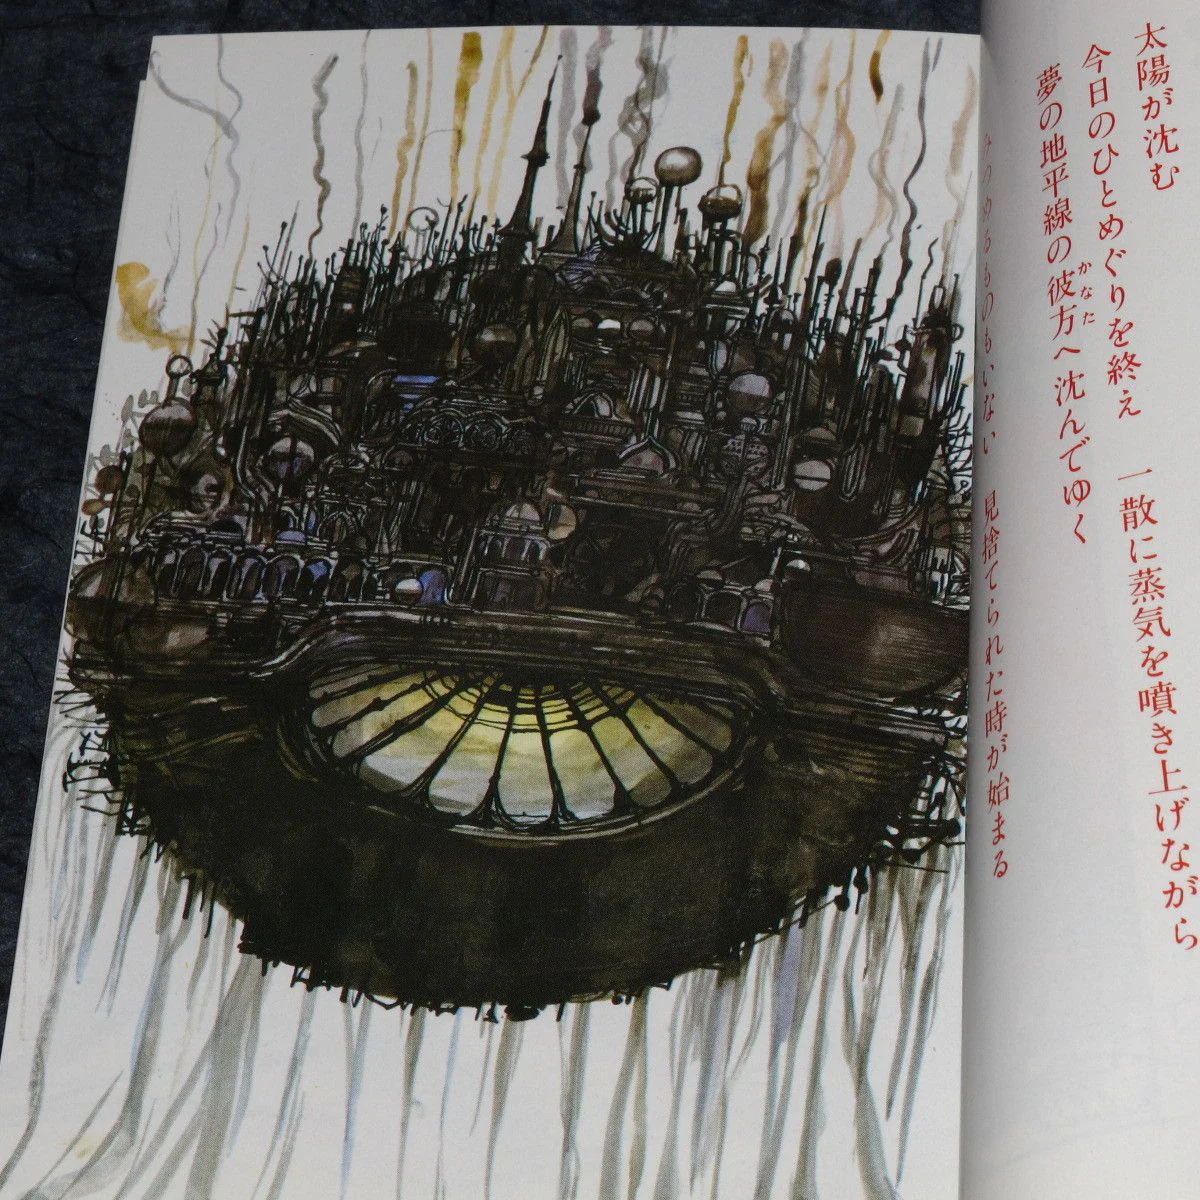 太陽が沈む
今日のひとめぐりを終え　一散に蒸気を噴き上げながら
夢の地平線の彼方へ沈んでゆく
かなた
めるものもいない　見捨てられた時が始まる